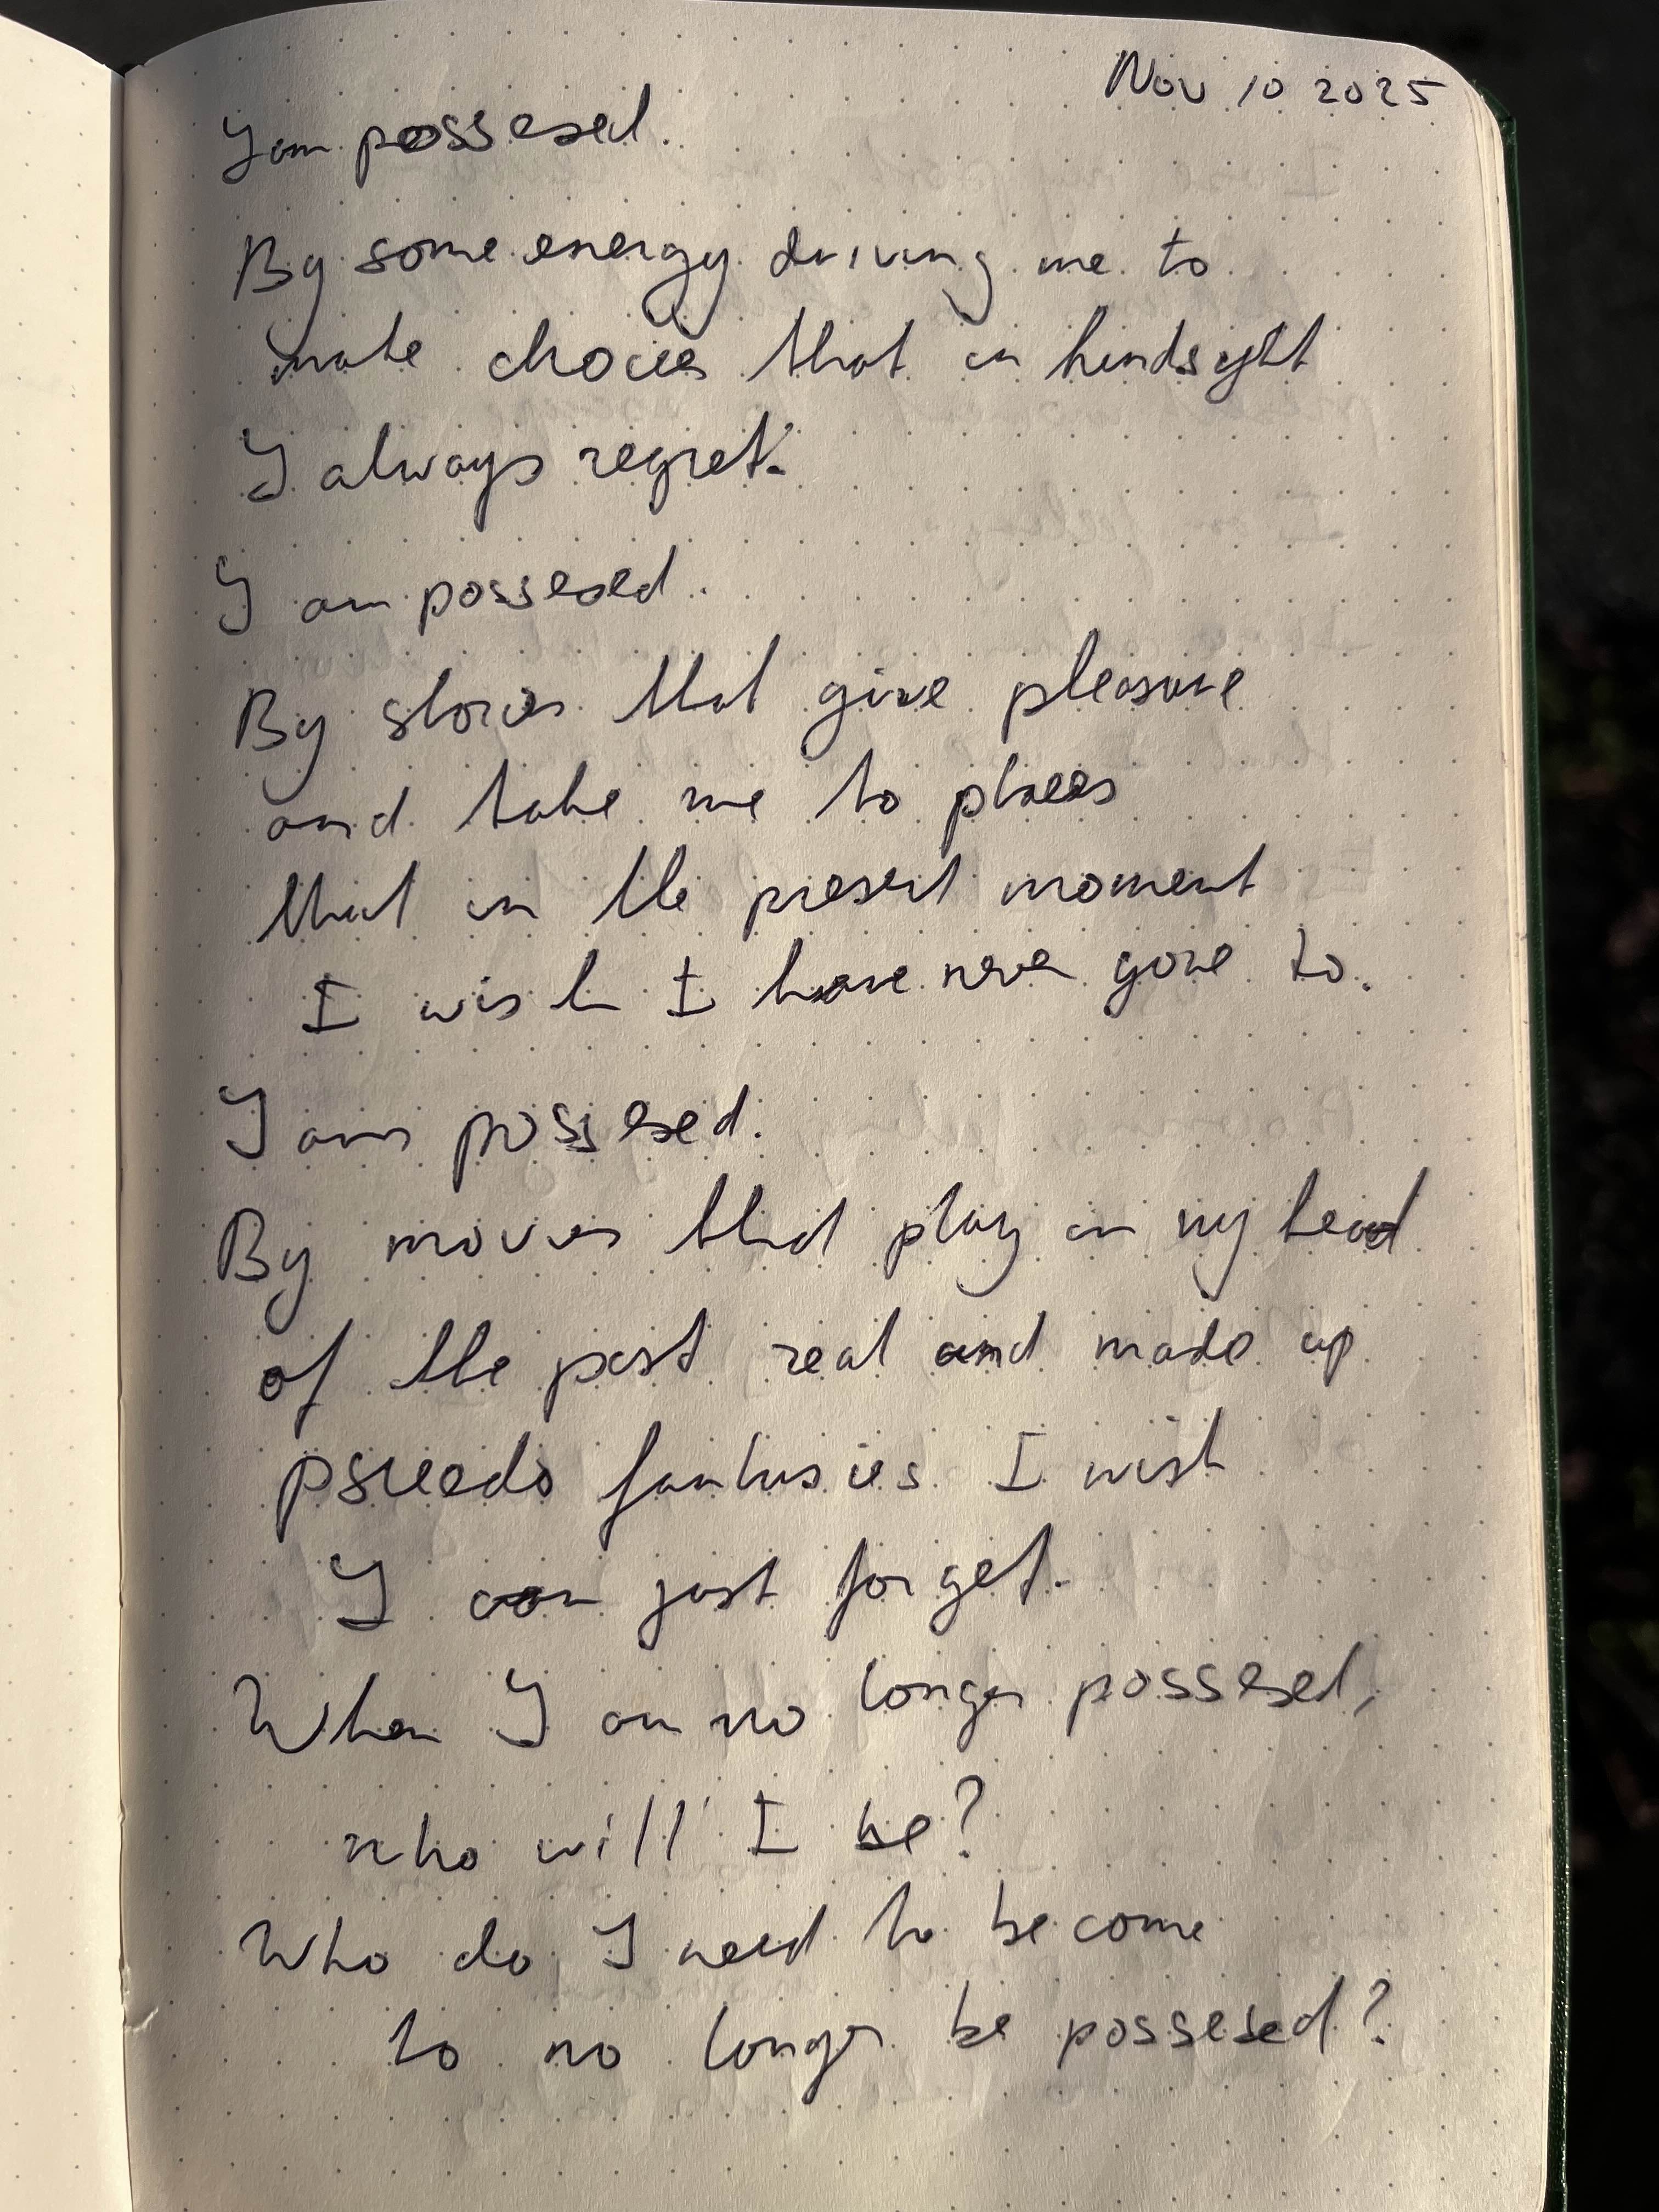 Nov 10 2025
I am possesed.
By some energy driving me to
make choices that in hindsight
I always regret.
I am possesed.
By stories that give pleasure
and take me to places
that in the present moment
I wish I have never gone to.
I am possesed.
By movies that play in my head
of the past real and made up
pseudo fantasies I wish
I can just forget.
When I am no longer possesed,
who will I be?
Who do I need to become
to no longer be possesed?